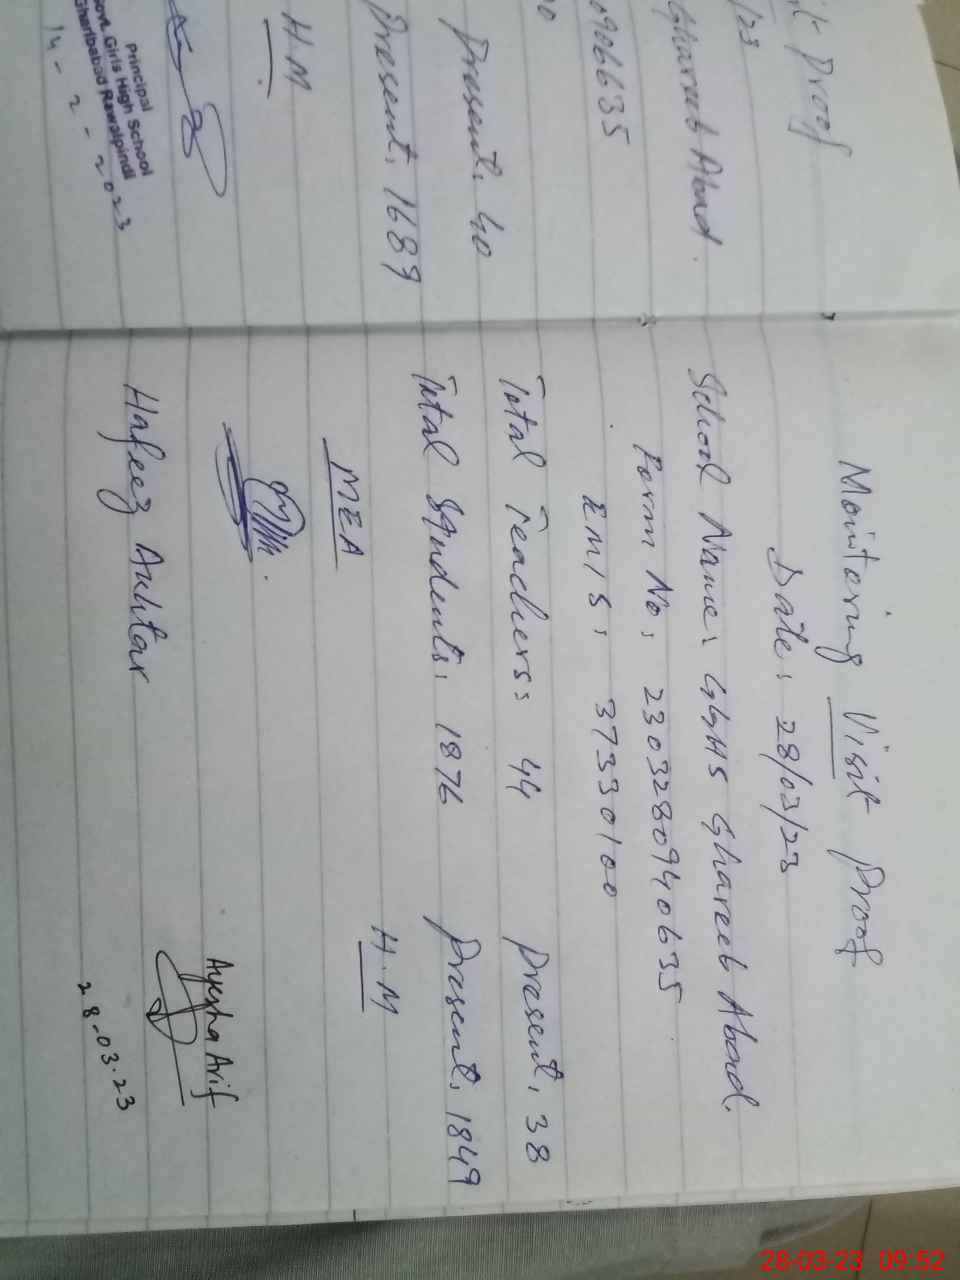 it Proof
/23
Ghareeb Abad.
0906635
00
Present: 40
Present: 1689
H.M
Principal
Govt. Girls High School
Gharibabad Rawalpindi
14-2-2023
Monitoring Visit Proof
Date: 28/03/23
School Name: GGHS Ghareeb Abad.
Form No: 2303280940635
EMIS: 37330100
Total Teachers: 44 Present: 38
Total Students: 1876 Present: 1849
MEA H.M
Hafeez Akhtar
Ayesha Arif
28.03.23
28-03-23 09:52